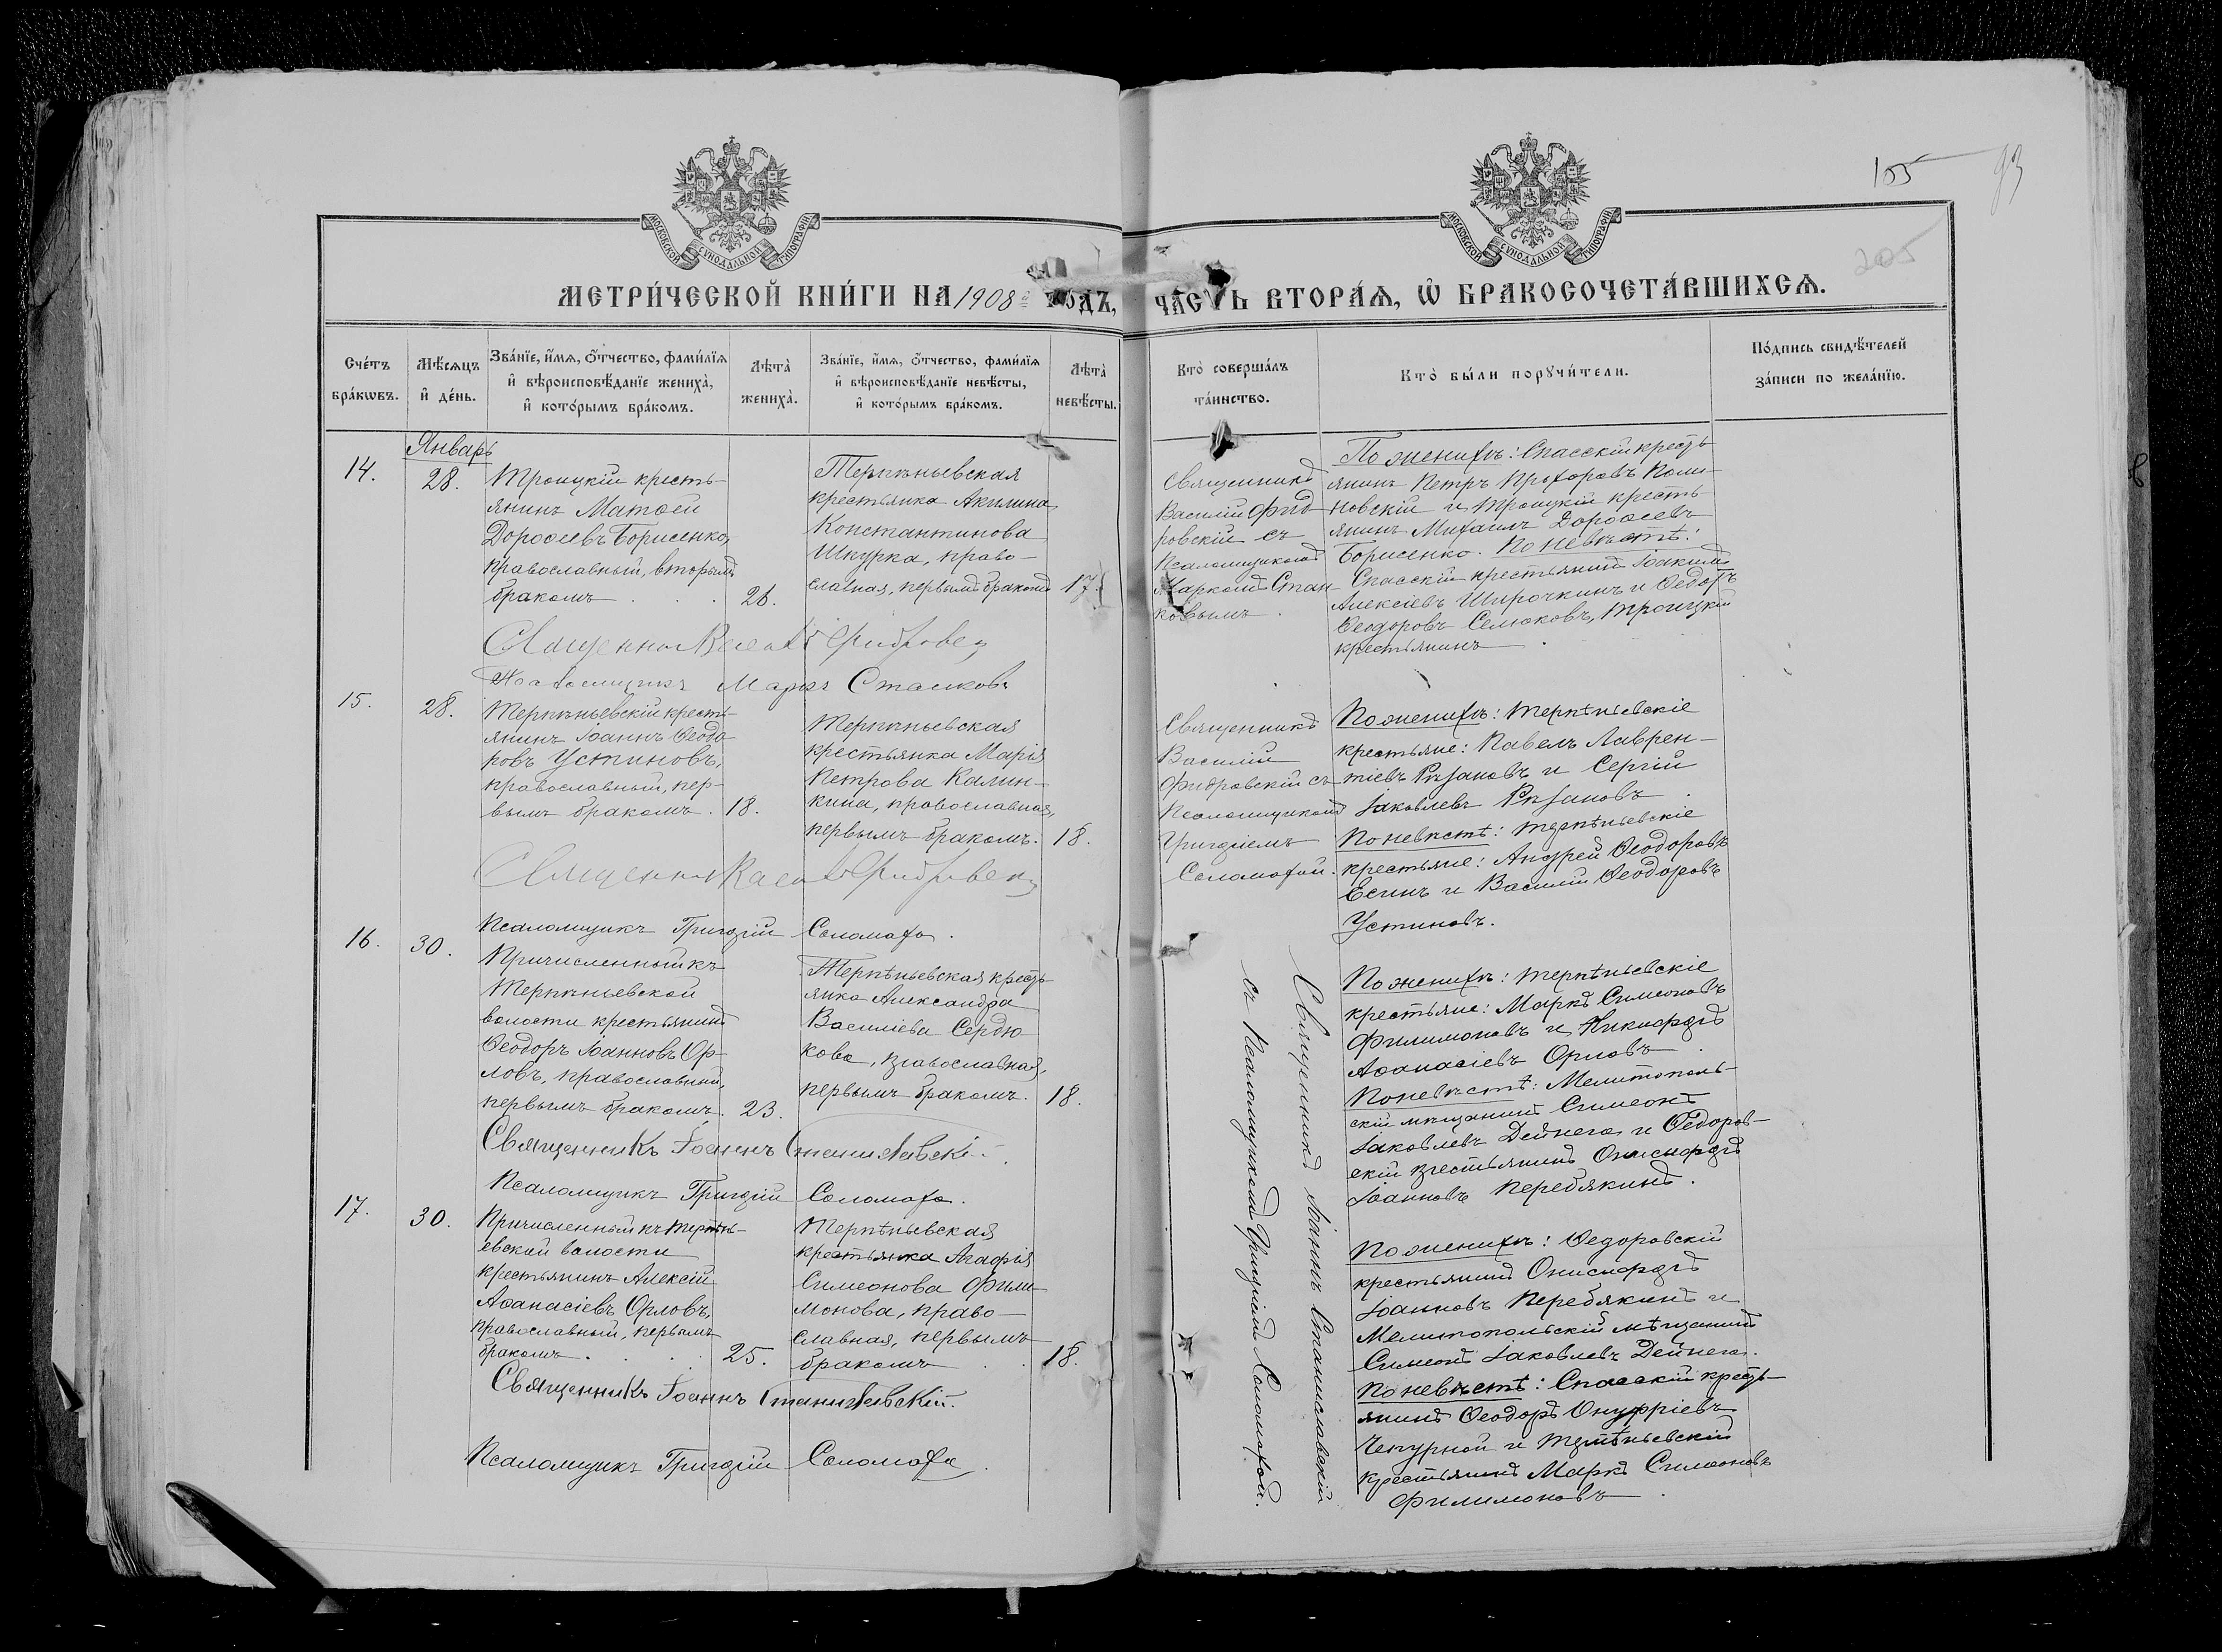 155
93
205
МОСКОВСКОЙ СѴНОДАЛЬНОЙ ТИПОГРАФІИ
МОСКОВСКОЙ СѴНОДАЛЬНОЙ ТИПОГРАФІИ
МЕТРИ́ЧЕСКОЙ КНИ́ГИ НА 1908й ГОДЪ, ЧА́СТЬ ВТОРА́Ѧ, Ѡ҆ БРАКОСОЧЕТА́ВШИХСѦ.
Сче́тъ бра́кѡвъ.
Мѣ́сѧцъ и҆ де́нь.
Зва́нїе, и҆́мѧ, ѻ҆́тчество, фами́лїѧ
и҆ вѣроисповѣ́данїе жениха̀,
и҆ кото́рымъ бра́комъ.
Лѣта̀ жениха̀.
Зва́нїе, и҆́мѧ, ѻ҆́тчество, фами́лїѧ
и҆ вѣроисповѣ́данїе невѣ́сты,
и҆ кото́рымъ бра́комъ.
Лѣта̀ невѣ́сты.
Кто̀ соверша́лъ
та́инство.
Кто̀ бы́ли порꙋчи́тели.
По́дпись свидѣ́телей
за́писи по жела́нїю.
Январь
14.
28.
Троицкій кресть-
янинъ Матѳей
Дороѳеевъ Борисенко,
православный, вторымъ
бракомъ
26.
Терпѣньевская
крестьянка Акилина
Константинова
Шкурка, право-
славная, первымъ бракомъ
17.
Священникъ
Василій Фид-
ровскій съ
Псаломщикомъ
Маркомъ Стан-
ковымъ
По женихѣ: Спасскій кресть-
янинъ Петръ Прохоровъ
новскій и Троицкій кресть-
янинъ Михаилъ Дороѳеевъ
Борисенко. По невѣстѣ:
Спасскій крестьянинъ Іоакимъ
Алексіевъ Широчкинъ и Ѳедоръ
Ѳеодоровъ Селюковъ, Троицкій
крестьянинъ
Священникъ Василій Фидровскій
Псаломщикъ Маркъ Станковъ
15.
28.
Терпѣньевскій кресть-
янинъ Іоаннъ Ѳеодо-
ровъ Устиновъ,
православный, пер-
вымъ бракомъ.
18.
Терпѣньевская
крестьянка Марія
Петрова Калин-
кина, православная,
первымъ бракомъ.
18.
Священникъ
Василій
Фидровскій съ
Псаломщикомъ
Григоріемъ
Соломахой.
По женихѣ: Терпѣньевскіе
крестьяне: Павелъ Лаврен-
тіевъ Рязановъ и Сергій
Іаковлевъ Рязановъ
По невѣстѣ: Терпѣньевскіе
крестьяне: Андрей Ѳеодоровъ
Есинъ и Василій Ѳеодоровъ
Устиновъ.
Священникъ Василій Фидровскій
Псаломщикъ Григорій Соломаха.
16.
30.
Причисленный къ
Терпѣньевской
волости крестьянинъ
Ѳеодоръ Іоанновъ Ор-
ловъ, православный,
первымъ бракомъ.
23.
Терпѣньевская кресть-
янка Александра
Василіева Сердю-
кова, православная,
первымъ бракомъ.
18.
Священникъ Іоаннъ Станиславскій
съ Псаломщикомъ Григоріемъ Соломахой.
По женихѣ: Терпѣньевскіе
крестьяне: Маркъ Симеоновъ
Филимоновъ и Никифоръ
Аѳанасіевъ Орловъ
По невѣстѣ: Мелитополь-
скій мѣщанинъ Симеонъ
Іаковлевъ Дейнега и Ѳедоров-
скій крестьянинъ Онисифоръ
Іоанновъ Перебякинъ.
Священникъ Іоаннъ Станиславскій.
Псаломщикъ Григорій Соломаха.
17.
30.
Причисленный къ Терпѣнь-
евской волости
крестьянинъ Алексій
Аѳанасіевъ Орловъ,
православный, первымъ
бракомъ.
25.
Терпѣньевская
крестьянка Агафія
Симеонова Фили-
монова, право-
славная, первымъ
бракомъ
18.
По женихѣ: Ѳедоровскій
крестьянинъ Онисифоръ
Іоанновъ Перебякинъ и
Мелитопольскій мѣщанинъ
Симеонъ Іаковлевъ Дейнега.
По невѣстѣ: Спасскій кресть-
янинъ Ѳеодоръ Онуфріевъ
Чепурной и Терпѣньевскій
крестьянинъ Маркъ Симеоновъ
Филимоновъ
Священникъ Іоаннъ Станиславскій.
Псаломщикъ Григорій Соломаха.